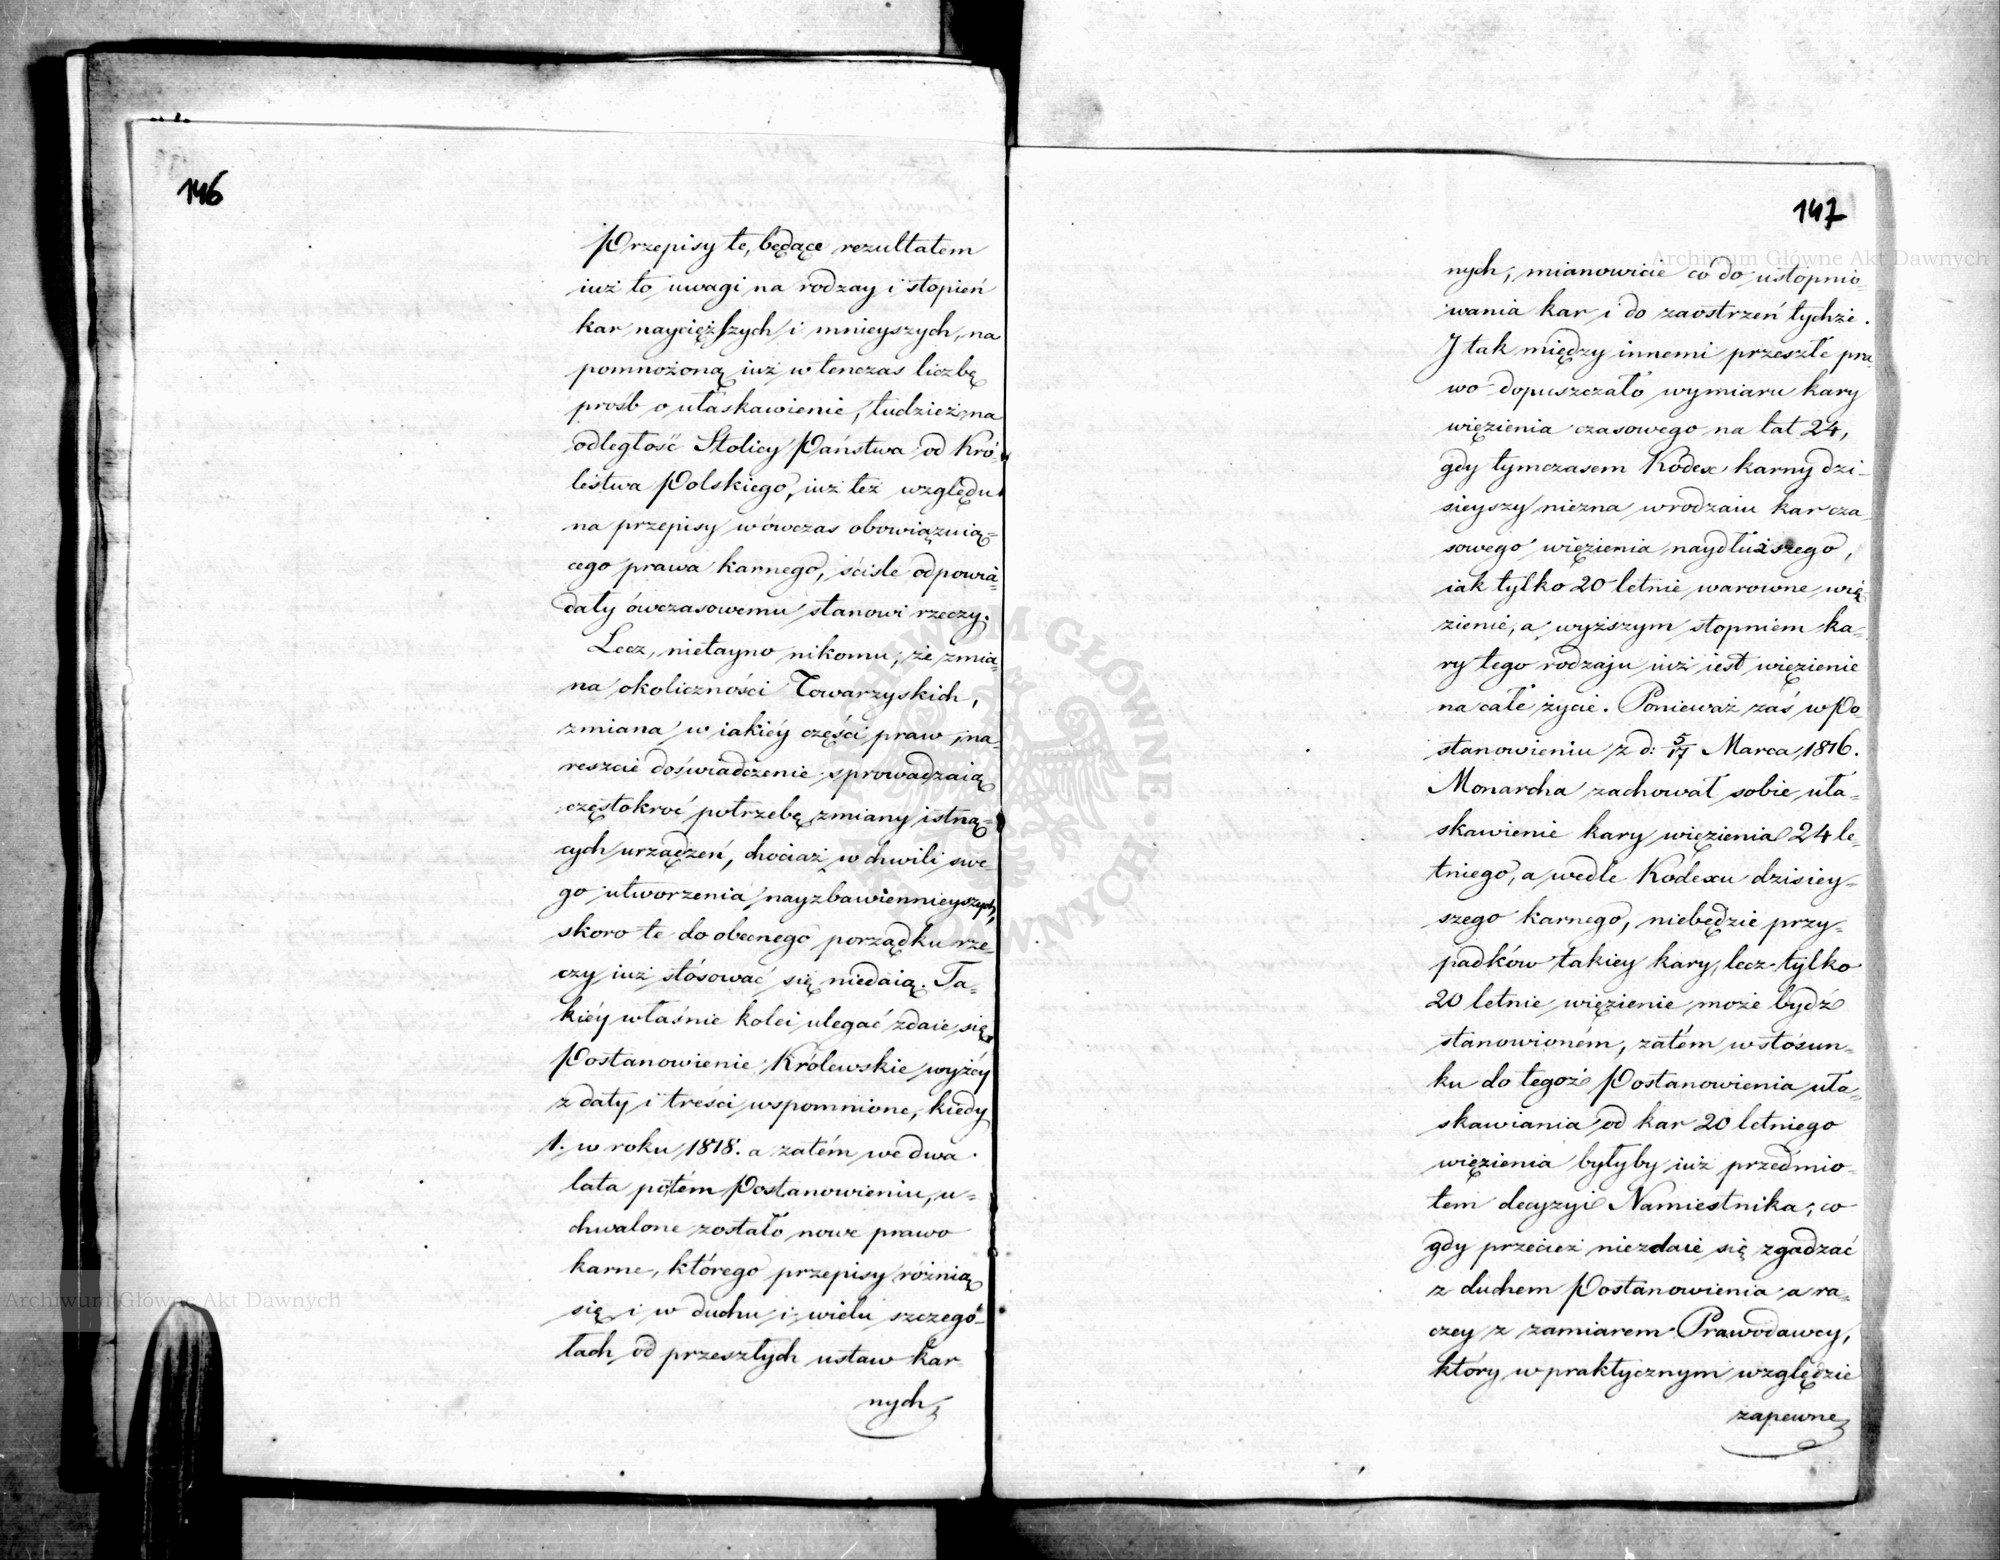 146
Przepisy te, będące rezultatem
iuż to uwagi na rodzay i stopień
kar naycięższych i mnieyszych, na
pomnożoną iuż w tenczas liczbę
prośb o ułaskawienie, tudzież na
odległość Stolicy Państwa od Kró-
lestwa Polskiego, iuż też względu
na przepisy wówczas obowiązuią-
cego prawa karnego, ściśle odpowia-
dały ówczasowemu stanowi rzeczy.
Lecz, nietayno nikomu, że zmia-
na okoliczności Towarzyskich,
zmiana w iakiéy części praw, na-
reszcie doświadczenie sprowadzaią
częstokroć potrzebę zmiany istnią-
cych urządzeń, chociaż w chwili swe-
go utworzenia nayzbawiennieyszych,
skoro te do obecnego porządku rze-
czy iuż stósować się niedaią. Ta-
kiéy właśnie kolei ulegać zdaie się
Postanowienie Królewskie wyżéy
z daty i treści wspomnione, kiedy
1. w roku 1818. a zatém we dwa
lata potém Postanowieniu, u-
chwalone zostało nowe prawo
karne, którego przepisy różnią
się i w duchu i wielu szczegó-
łach od przeszłych ustaw kar
nych,
147
nych, mianowicie co do ustopnio-
wania kar i do zaostrzeń tychże.
I tak między innemi przeszłe pra-
wo dopuszczało wymiaru kary
więzienia czasowego na lat 24,
gdy tymczasem Kodex karny dzi-
sieyszy niezna w rodzaiu kar cza-
sowego więzienia naydłuższego,
iak tylko 20 letnie warowne wię-
zienie, a wyższym stopniem ka-
ry tego rodzaju iuż iest więzienie
na całe życie. Ponieważ zaś w Po-
stanowieniu z d: 5/17 Marca 1816.
Monarcha zachował sobie uła-
skawienie kary więzienia 24 le-
tniego, a wedle Kodexu dzisiey-
szego karnego, niebędzie przy-
padków takiey kary, lecz tylko
20 letnie więzienie może bydź
stanowioném, zatém w stósun-
ku do tegoż Postanowienia uła-
skawiania od kar 20 letniego
więzienia byłyby iuż przedmio-
tem decyzyi Namiestnika, co
gdy przecież niezdaie się zgadzać
z duchem Postanowienia a ra-
czey z zamiarem Prawodawcy,
który w praktycznym względzie
zapewne
Archiwum Główne Akt Dawnych
Archiwum Główne Akt Dawnych
ARCHIWUM GŁÓWNE AKT DAWNYCH